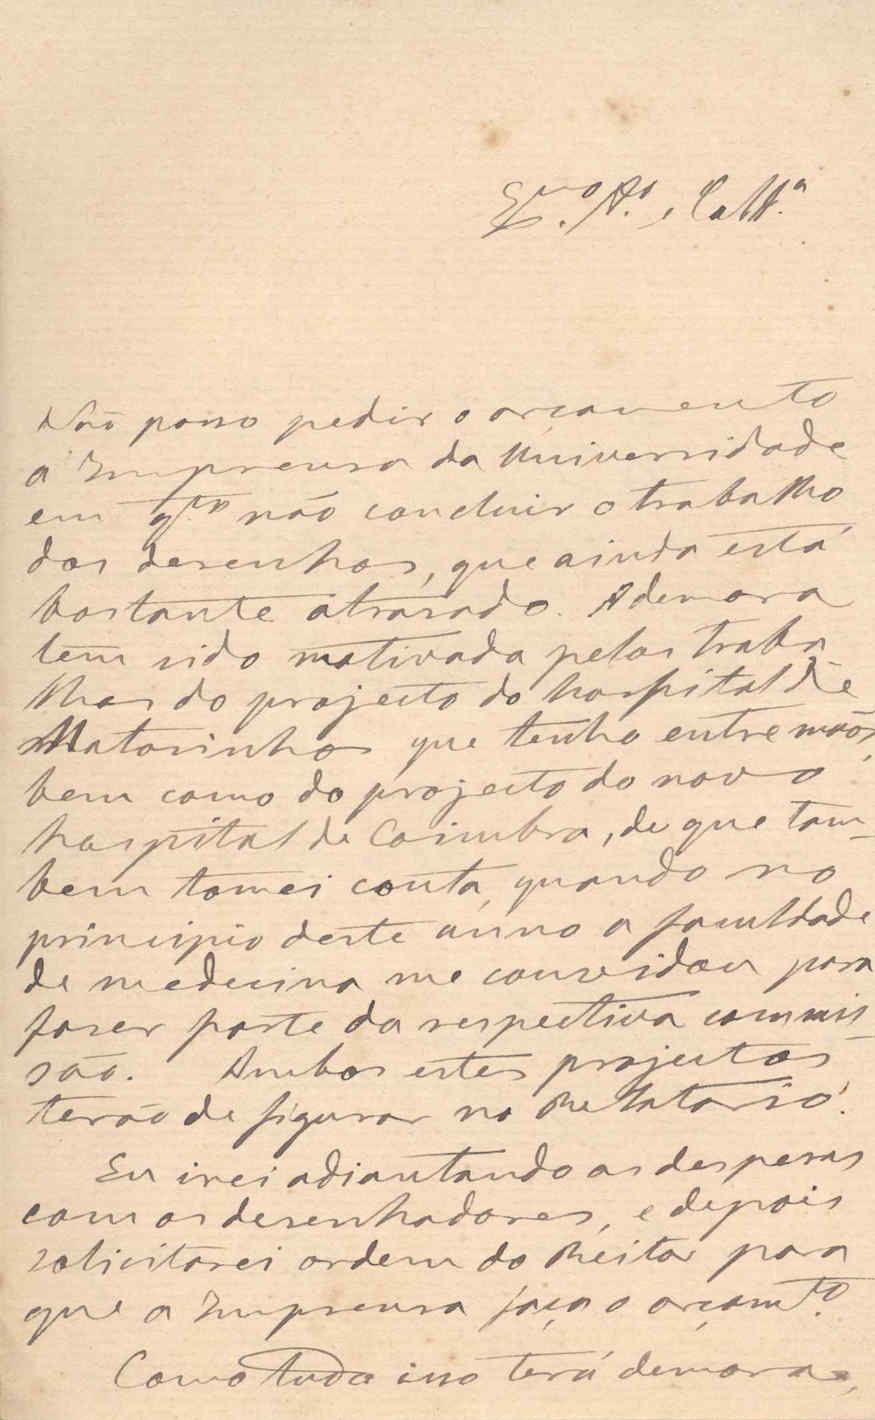 Ex.mo A.o e Coll.a
Não posso pedir o orçamento
á Imprensa da Universidade
em q.to não concluir o trabalho
dos desenhos, que ainda está
bastante atrasado. A demora
tem sido motivada pelos traba
lhos do projecto do hospital de
Matosinhos que tenho entre mãos,
bem como do projecto do novo
hospital de Coimbra, de que tam-
bem tomei conta, quando no
principio deste anno a faculdade
de medecina me convidou para
faser parte da respectiva commis
são. Ambos estes projectos
terão de figurar no Relatorio.
Eu irei adiantando as despesas
com os desenhadores, e depois
solicitarei ordem do Reitor para
que a Imprensa faça o orçam.to
Como tudo isso terá demora,